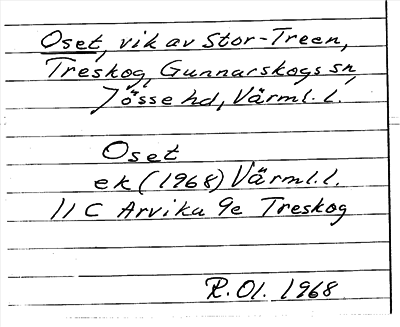 Oset, vik av Stor-Treen,
Treskog, Gunnarskogs sn,
Jösse hd, Värml. l.
Oset
ek (1968) Värml. l.
11 C Arvika 9e Treskog
R. Ol. 1968